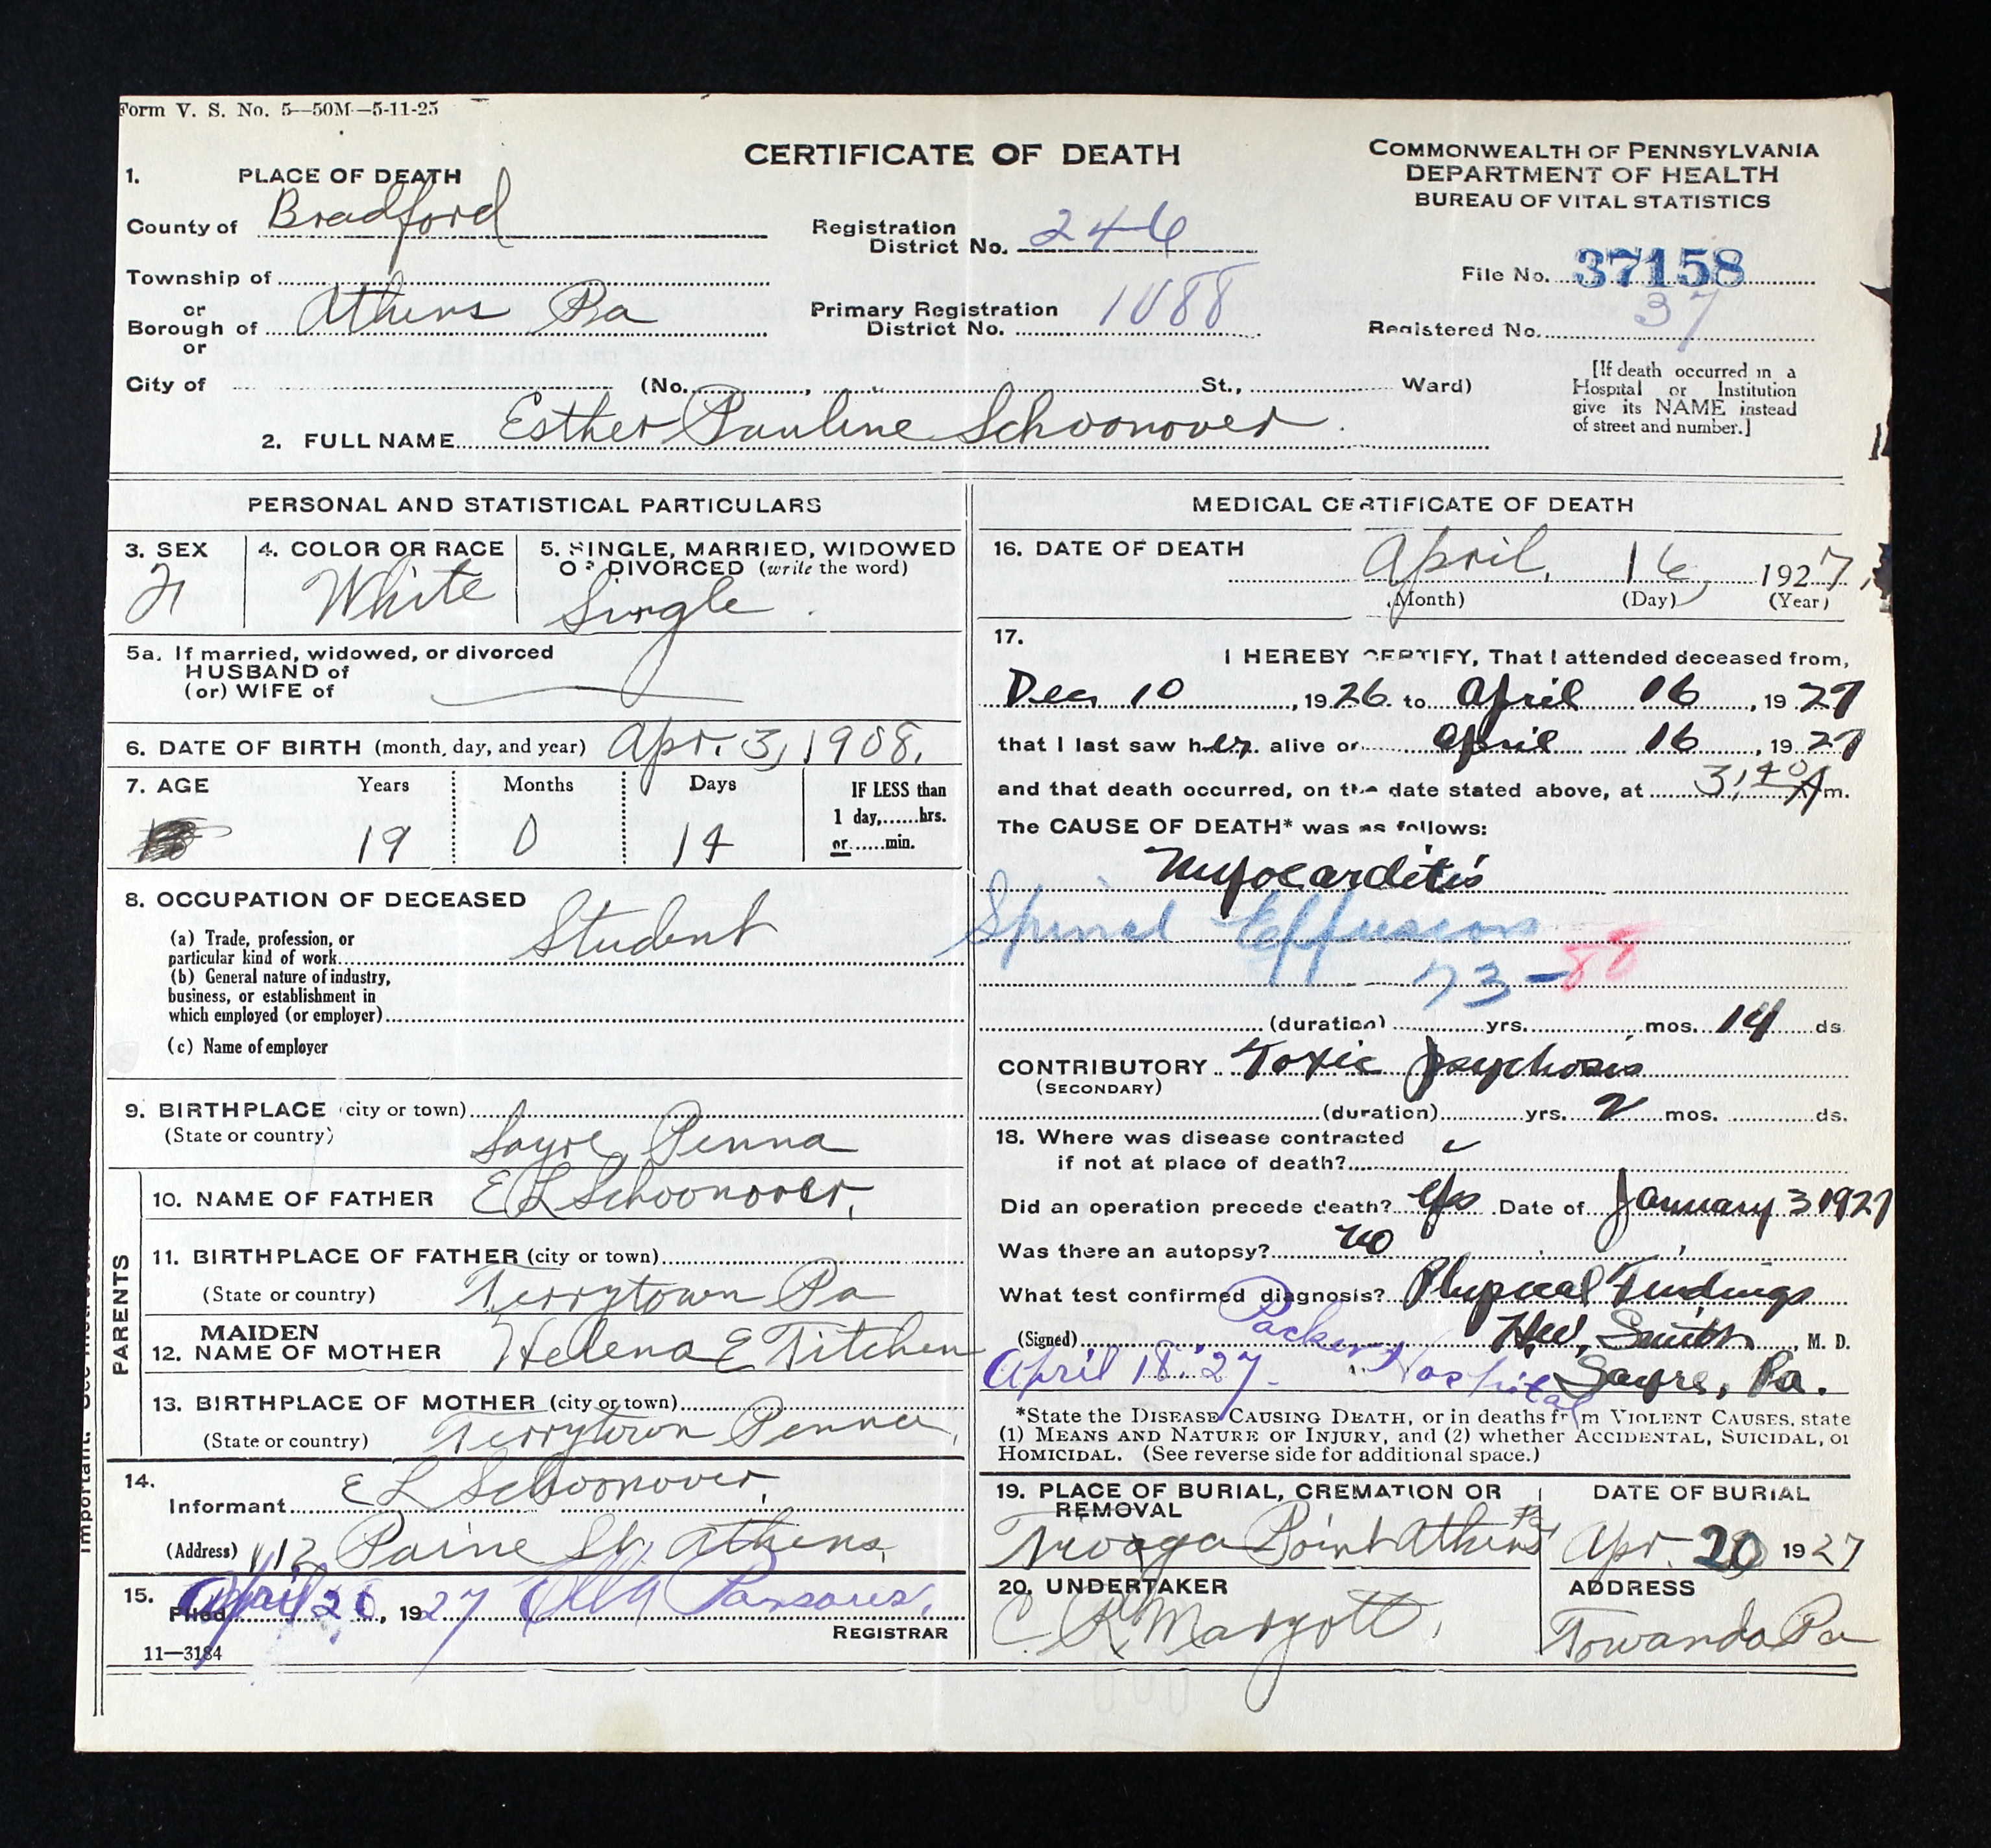 Form V. S. No. 5—50M—5-11-25
CERTIFICATE OF DEATH
COMMONWEALTH OF PENNSYLVANIA
DEPARTMENT OF HEALTH
BUREAU OF VITAL STATISTICS
1. PLACE OF DEATH
County of Bradford
Registration District No. 246
File No. 37158
Township of
or
Borough of Athens Pa
or
Primary Registration District No. 1088
Registered No. 37
City of (No. , St., Ward)
[If death occurred in a
Hospital or Institution
give its NAME instead
of street and number.]
2. FULL NAME Esther Pauline Schoonover
PERSONAL AND STATISTICAL PARTICULARS
3. SEX
4. COLOR OR RACE
White
5. SINGLE, MARRIED, WIDOWED
OR DIVORCED (write the word)
Single
5a. If married, widowed, or divorced
HUSBAND of
(or) WIFE of
6. DATE OF BIRTH (month, day, and year) Apr. 3, 1908.
7. AGE Years Months Days
19 0 14
IF LESS than
1 day,......hrs.
or......min.
8. OCCUPATION OF DECEASED
(a) Trade, profession, or
particular kind of work Student
(b) General nature of industry,
business, or establishment in
which employed (or employer)
(c) Name of employer
9. BIRTHPLACE (city or town)
(State or country) Sayre, Penna
PARENTS
10. NAME OF FATHER E L Schoonover,
11. BIRTHPLACE OF FATHER (city or town)
(State or country) Terrytown Pa
12. MAIDEN NAME OF MOTHER Helena E Titchen
13. BIRTHPLACE OF MOTHER (city or town)
(State or country) Terrytown Penna,
14.
Informant E L Schoonover,
(Address) 112 Paine St Athens,
15.
Filed April 20, 1927 Ella Parsons,
REGISTRAR
11—3184
MEDICAL CERTIFICATE OF DEATH
16. DATE OF DEATH April, 16, 1927,
(Month) (Day) (Year)
17.
I HEREBY CERTIFY, That I attended deceased from,
Dec, 10, 1926. to April 16, 1927
that I last saw her alive on April 16, 1927
and that death occurred, on the date stated above, at 3:40 A m.
The CAUSE OF DEATH* was as follows:
Myocarditis
Spinal Effusion
73 - 88
(duration) yrs. mos. 14 ds.
CONTRIBUTORY Toxic psychosis
(SECONDARY)
(duration) yrs. 2 mos. ds.
18. Where was disease contracted
if not at place of death?
Did an operation precede death? Yes Date of January 3 1927
Was there an autopsy? no
What test confirmed diagnosis? Physical Findings
(Signed) H.W. Smith, M. D.
Packer Hospital
April 18, '27. Sayre, Pa.
*State the DISEASE CAUSING DEATH, or in deaths from VIOLENT CAUSES, state
(1) MEANS AND NATURE OF INJURY, and (2) whether ACCIDENTAL, SUICIDAL, or
HOMICIDAL. (See reverse side for additional space.)
19. PLACE OF BURIAL, CREMATION OR
REMOVAL
Tioga Point Athens Pa
DATE OF BURIAL
Apr. 20 1927
20. UNDERTAKER
C R Margott,
ADDRESS
Towanda Pa